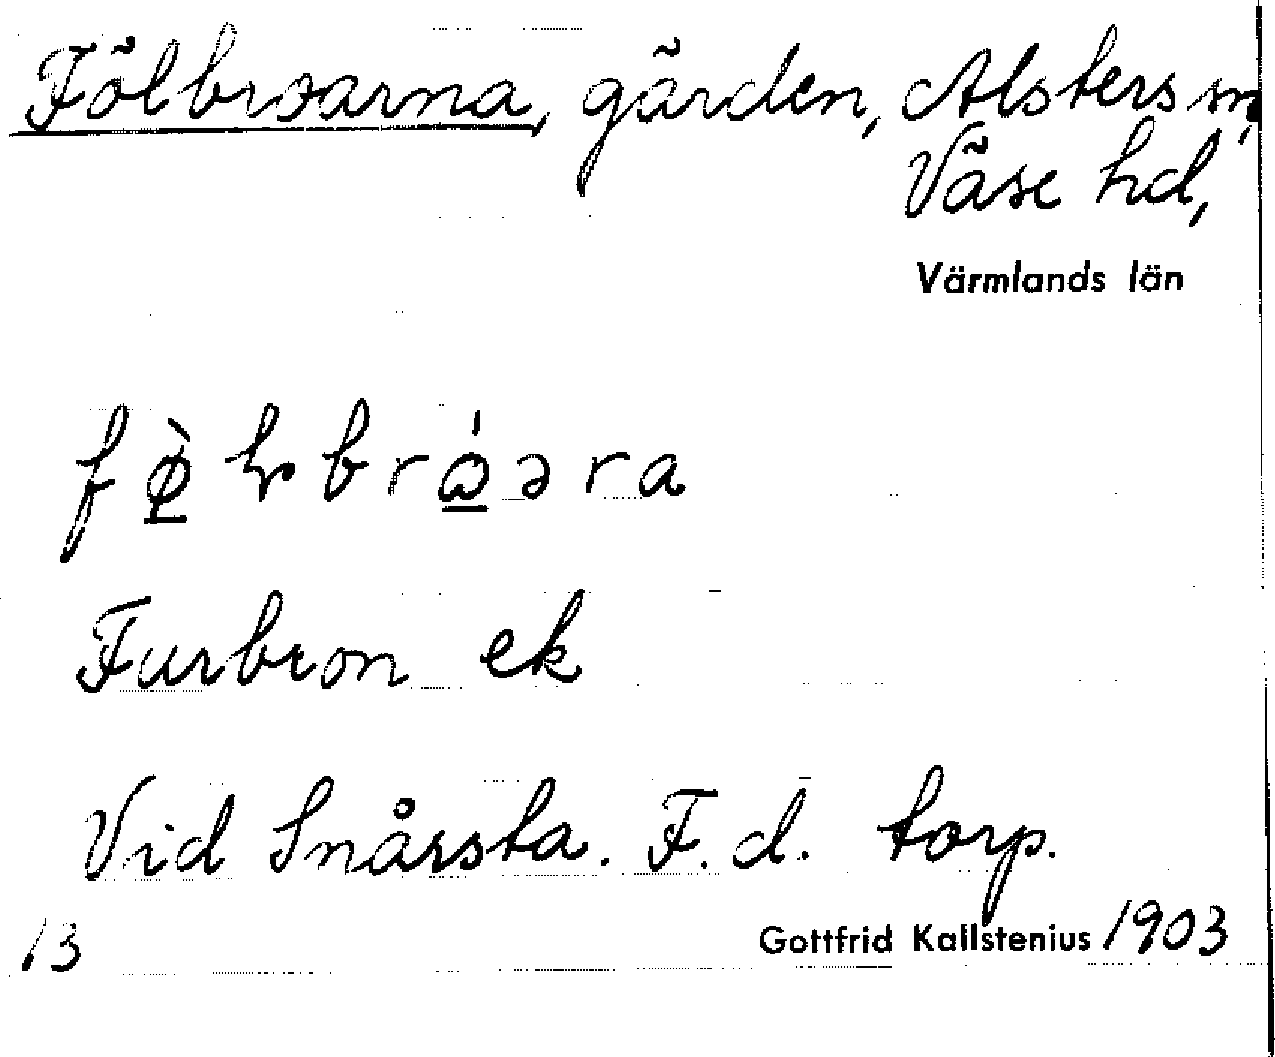 Fölbroarna, gården, Alsters sn,
Väse hd,
Värmlands län
Furbron ek
Vid Snårsta. F.d. torp.
13 Gottfrid Kallstenius 1903